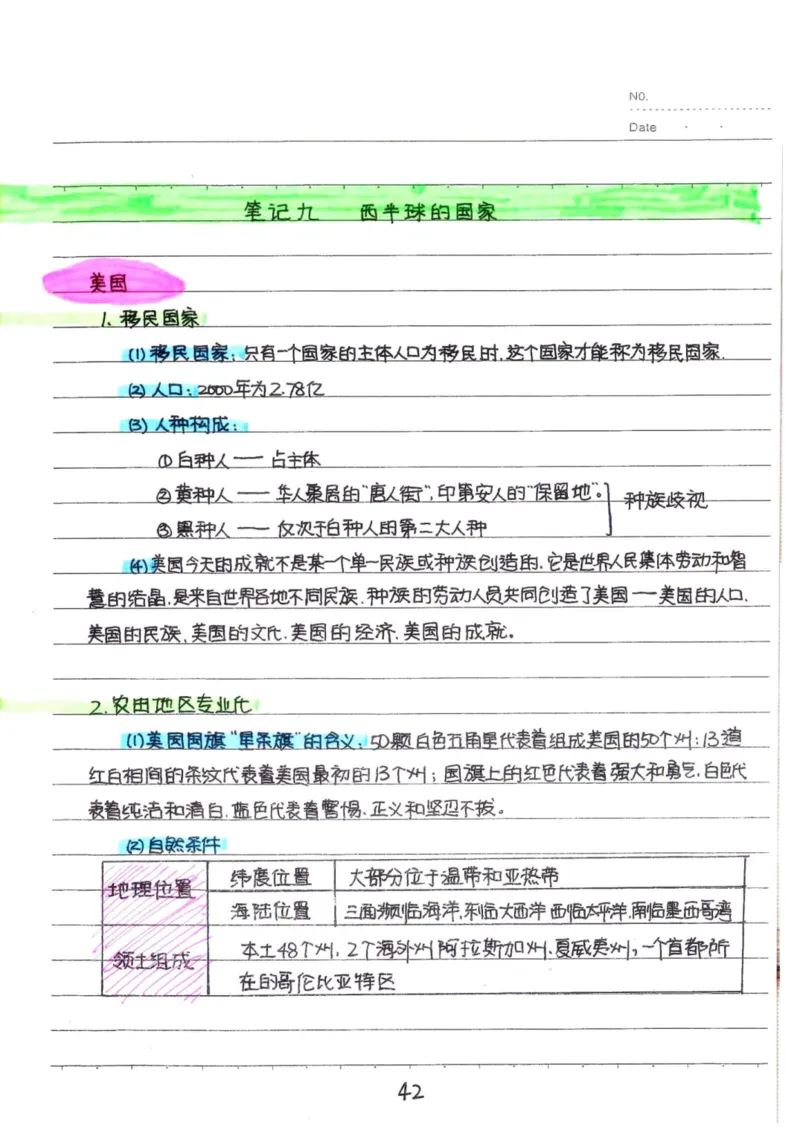 NO.
Date
笔记九 西半球的国家
美国
1. 移民国家
(1) 移民国家：只有一个国家的主体人口为移民时，这个国家才能称为移民国家.
(2) 人口：2000年为2.78亿
(3) 人种构成：
① 白种人 — 占主体
② 黄种人 — 华人聚居的“唐人街”，印第安人的“保留地”。
种族歧视
③ 黑种人 — 仅次于白种人的第二大人种
(4) 美国今天的成就不是某一个单一民族或种族创造的，它是世界人民集体劳动和智
慧的结晶，是来自世界各地不同民族、种族的劳动人员共同创造了美国 — 美国的人口、
美国的民族、美国的文化、美国的经济、美国的成就。
2. 农田地区专业化
(1) 美国国旗“星条旗”的含义：50颗白色五角星代表着组成美国的50个州；13道
红白相间的条纹代表着美国最初的13个州；国旗上的红色代表着强大和勇气，白色代
表着纯洁和清白，蓝色代表着警惕、正义和坚忍不拔。
(2) 自然条件
地理位置 纬度位置 大部分位于温带和亚热带
海陆位置 三面濒临海洋，东临大西洋 西临太平洋，南临墨西哥湾
领土组成 本土48个州，2个海外州 阿拉斯加州、夏威夷州，一个首都所
在的哥伦比亚特区
42